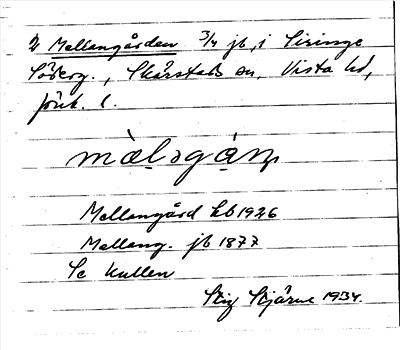 2 Mellangården 3/4 jb, i Siringe
Söderg., Skärstads sn, Vista hd,
Jönk. l.
mæ̀lǝgɑ̀ɳ
Mellangård kb 1926
Mellang. jb 1877
Se Kullen
Stig Stjärne 1934.